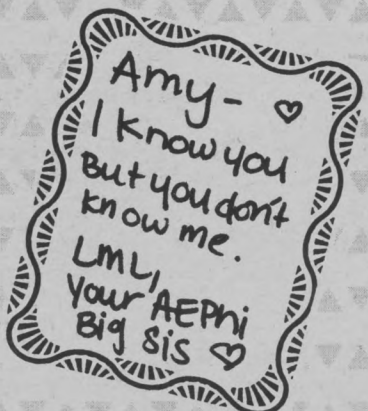 Amy- ♡
I know you
But you don't
know me.
LML,
your AEPhi
Big Sis ♡